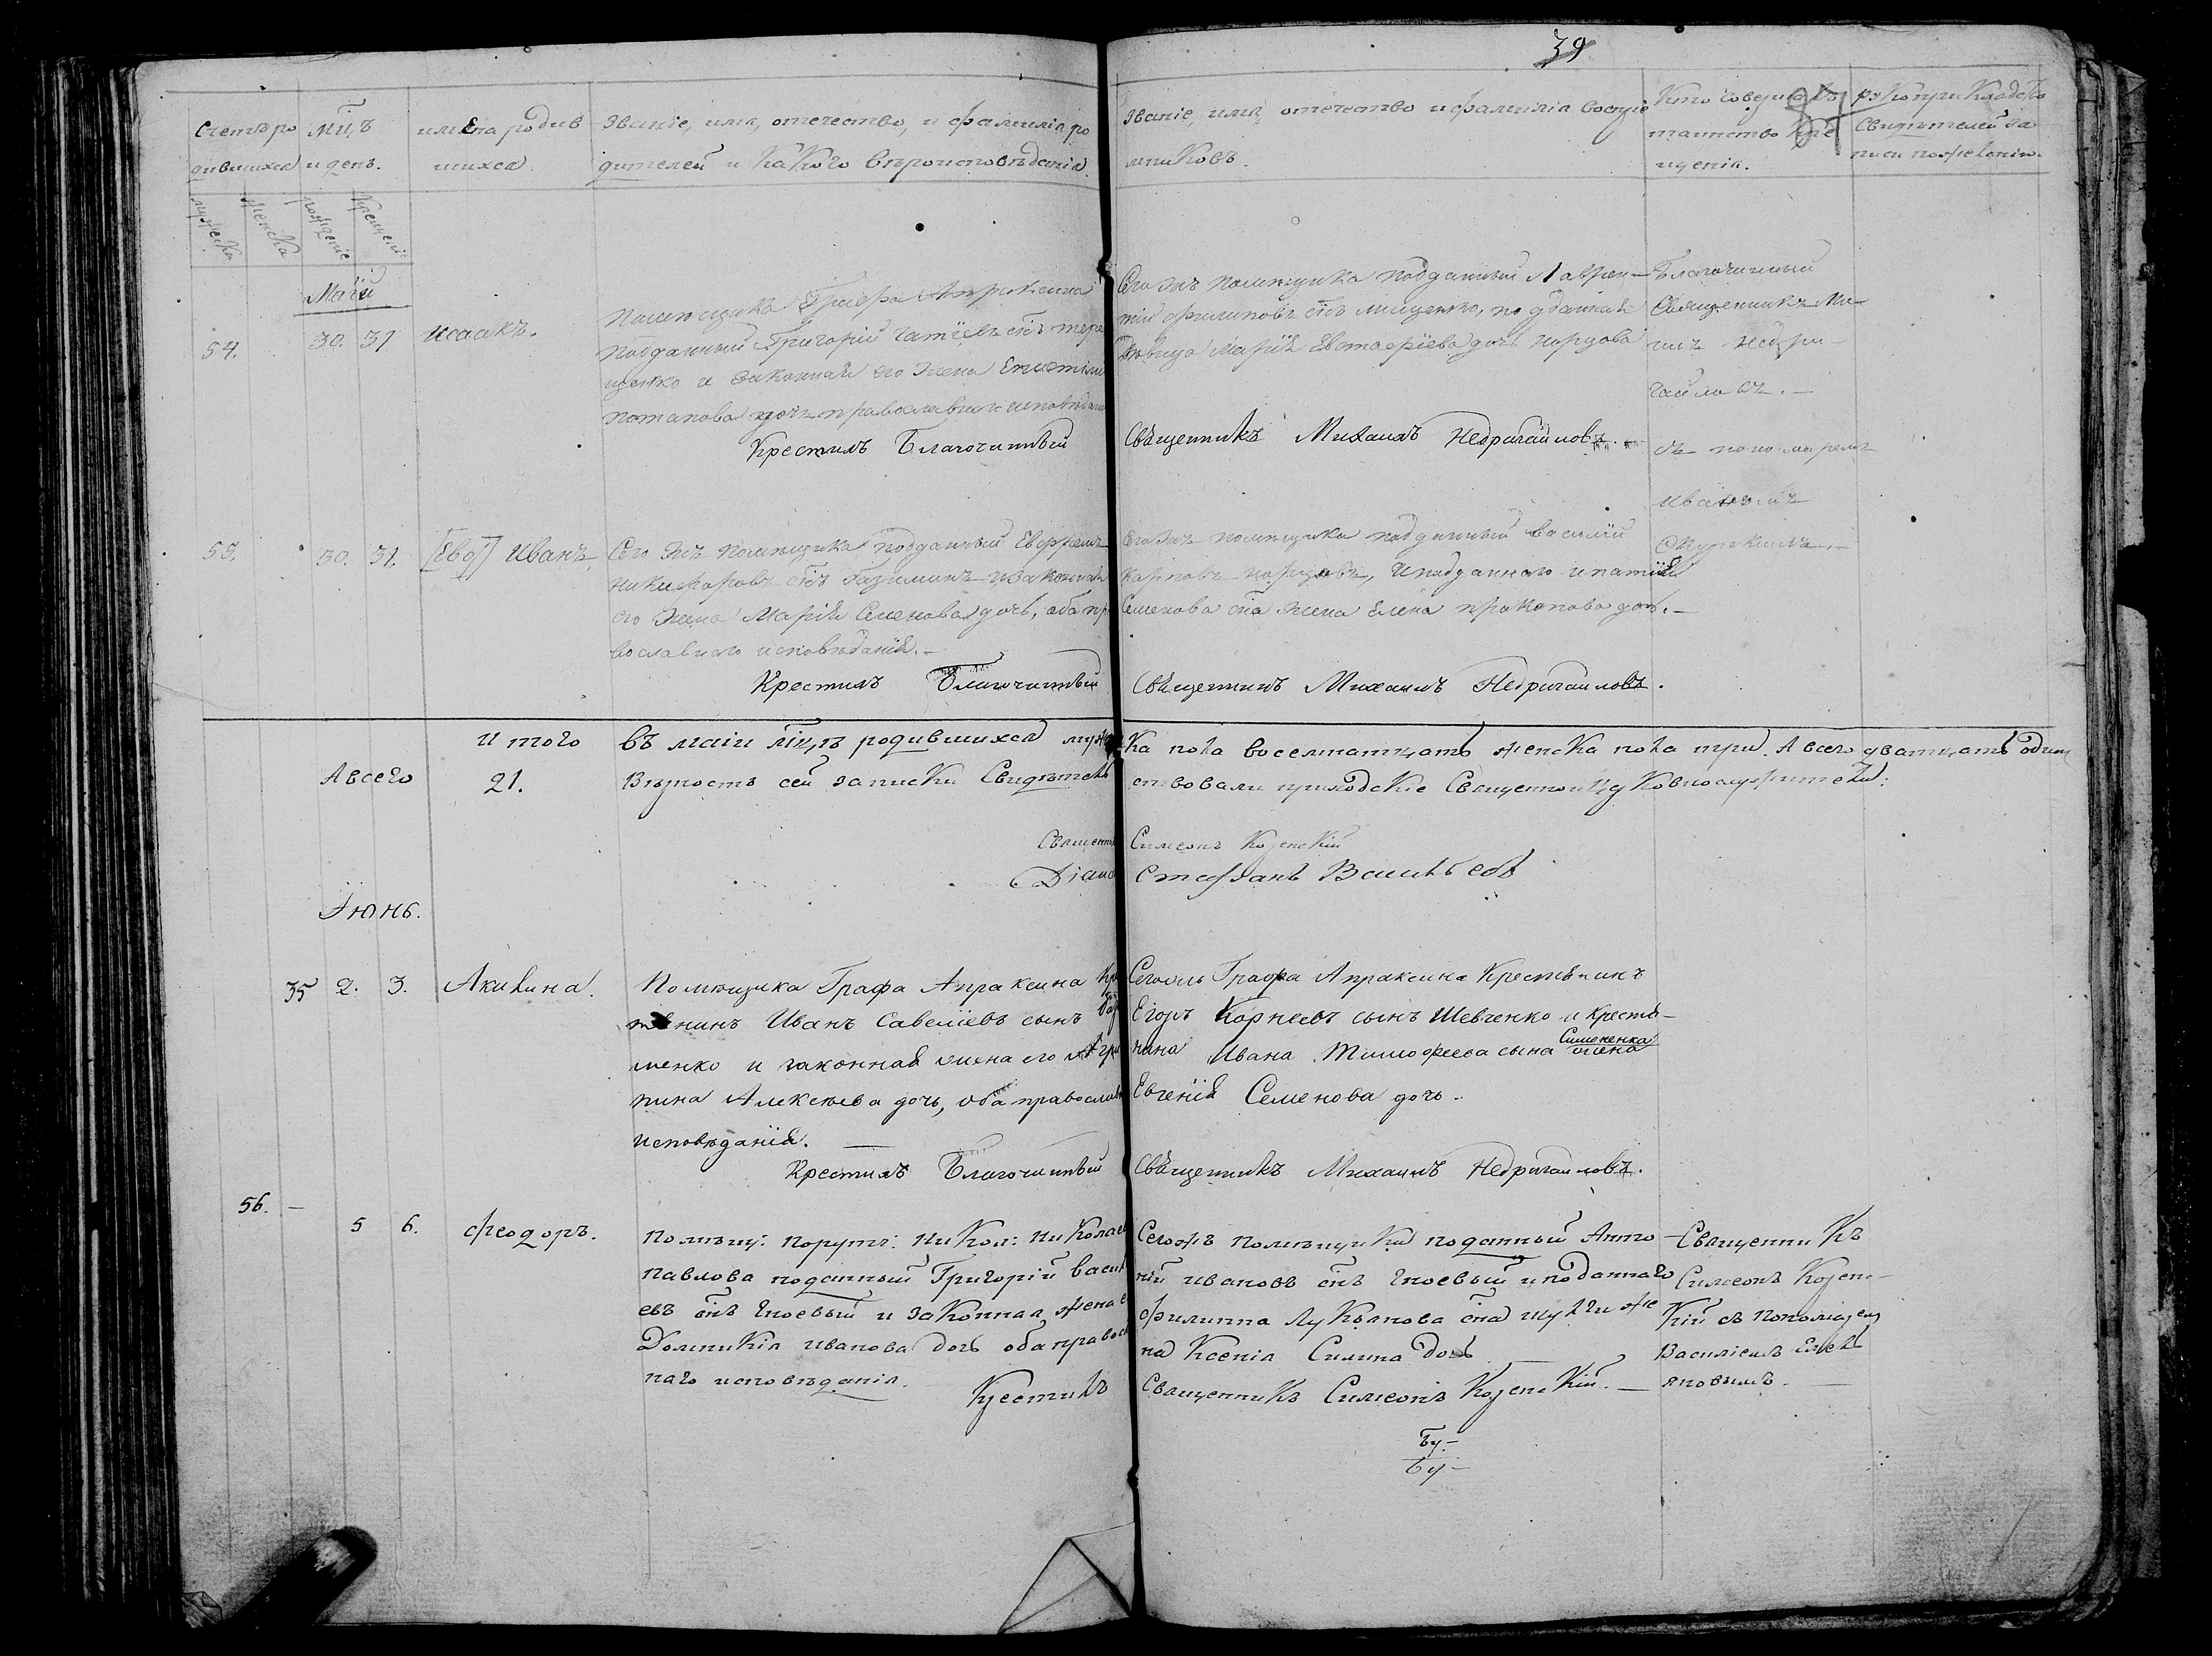 39
Счетъ ро
дившихся
мцъ
и день.
имена родив
шихся
Званіе, имя, отечество, и фамилія ро
дителей и какого вѣроисповѣданія.
Званіе, имя, отечество и фамилія воспріе
мниковъ.
Кто совершалъ
таинство кре
щенія.
свидѣтелей за
писи по желанію.
мужеска
женска
рожденіе
крещеніе
Маій
54. 30. 31 Исаакъ.
Помѣщика Графа Апраксина
подданный Григорій снъ тере
щенко и законная его жена
потапова дочь православнаго исповѣдані
Крестилъ Благочинный
Сего жъ помѣщика подданный Лаврен-
тій филиповъ снъ мищенко, подданная
дѣвица Марія Евстафіева дочь
Священникъ Михаилъ Недригайловъ.
Благочинный
Священникъ Ми-
хаилъ Недри-
гайловъ.-
съ пономаремъ
Иваномъ
55. 30. 31. Иванъ
Сего жъ помѣщика подданный Евфремъ
Никифоровъ снъ и законная
его жена Марія Семенова дочь, оба пр
вославнаго исповѣданія.-
Крестилъ Благочинный
Сего жъ помѣщика подданный василій
Карповъ и подданнаго ипатія
Семенова сна жена Елена прокопова доч.-
Священникъ Михаилъ Недригайловъ.
Итого въ маіи мцѣ родившихся муже
ска пола восемнатцать женска пола три. А всего дватцать один
А всего 21. Вѣрность сей записки Свидѣтель
ствовали приходскіе Священно и Цековнослужители:
Священн Симеонъ
Діако Стефанъ Васильевъ
Іюнь.
35 2. 3. Акилина.
Помѣщика Графа Апраксина кре
тянинъ Иванъ Савеліевъ сынъ
менко и законная жена его Агри
пина Алексѣева дочь, оба православ
исповѣданія.
Крестилъ Благочинный
Сегожъ Графа Апраксина Крестянинъ
Егоръ Корнеевъ сынъ Шевченко и крестя-
нина Ивана Тимофеева сына Симоненка жена
Евгенія Семенова дочь.
Священникъ Михаилъ Недригайловъ.
56. - 5 6. Феодоръ.
Помѣщ: поруч: Никол: Николаев
Павлова поданный Григорій васил
евъ снъ Гноевый и законная жена е
Домникія иванова дочь оба правос
наго исповѣданія.
Крестилъ
Сегожъ помѣщика поданный Анто
ній ивановъ снъ Гноевый и поданнаго
филиппа Лукьянова сна же
на Ксенія Силина дочь
Священникъ Симеонъ
-Священникъ
Симеонъ
съ пономарем
Василіемъ